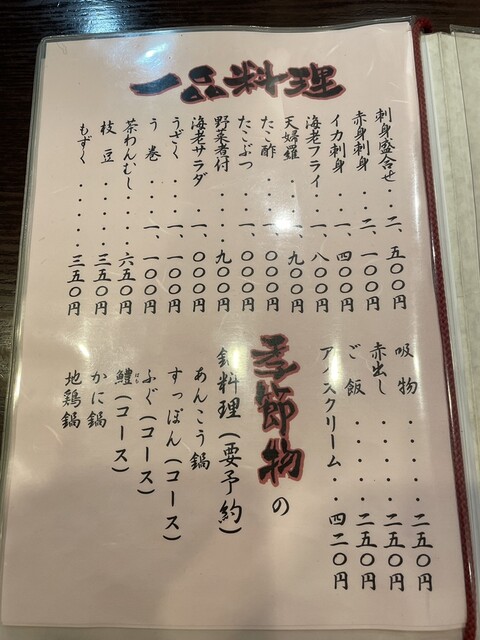 一品料理
刺身盛合せ・・二、五〇〇円
赤身刺身・・・二、一〇〇円
イカ刺身・・・一、四〇〇円
海老フライ・・一、八〇〇円
天婦羅・・・・一、九〇〇円
たこ酢・・・・一、〇〇〇円
たこぶつ・・・一、〇〇〇円
野菜煮付・・・・九〇〇円
海老サラダ・・一、〇〇〇円
うざく・・・・一、一〇〇円
う巻・・・・・一、一〇〇円
茶わんむし・・・・六五〇円
枝豆・・・・・・三五〇円
もずく・・・・・三五〇円
吸物・・・・・二五〇円
赤出し・・・・二五〇円
ご飯・・・・・二五〇円
アイスクリーム・・四二〇円
季節物の
鍋料理(要予約)
あんこう鍋
すっぽん(コース)
ふぐ(コース)
鱧(コース)
かに鍋
地鶏鍋